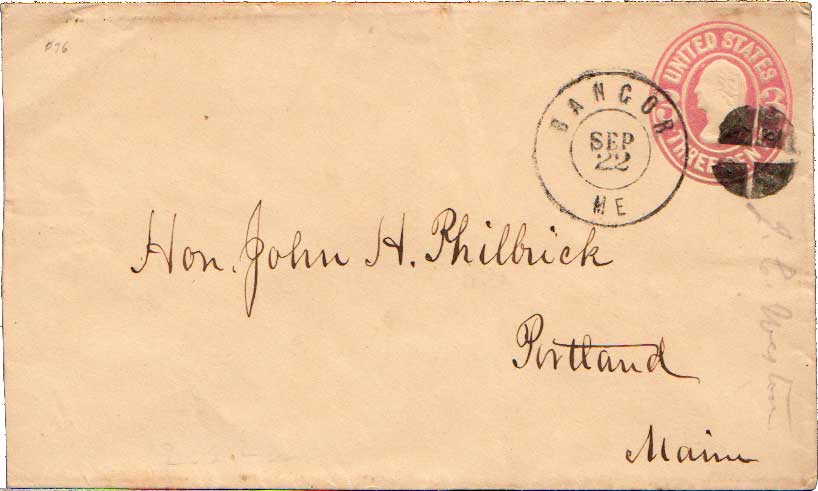 UNITED STATES
THREE CEN
BANGOR
SEP
22
ME
Hon. John H. Philbrick
Portland
Maine
J. C. Weston